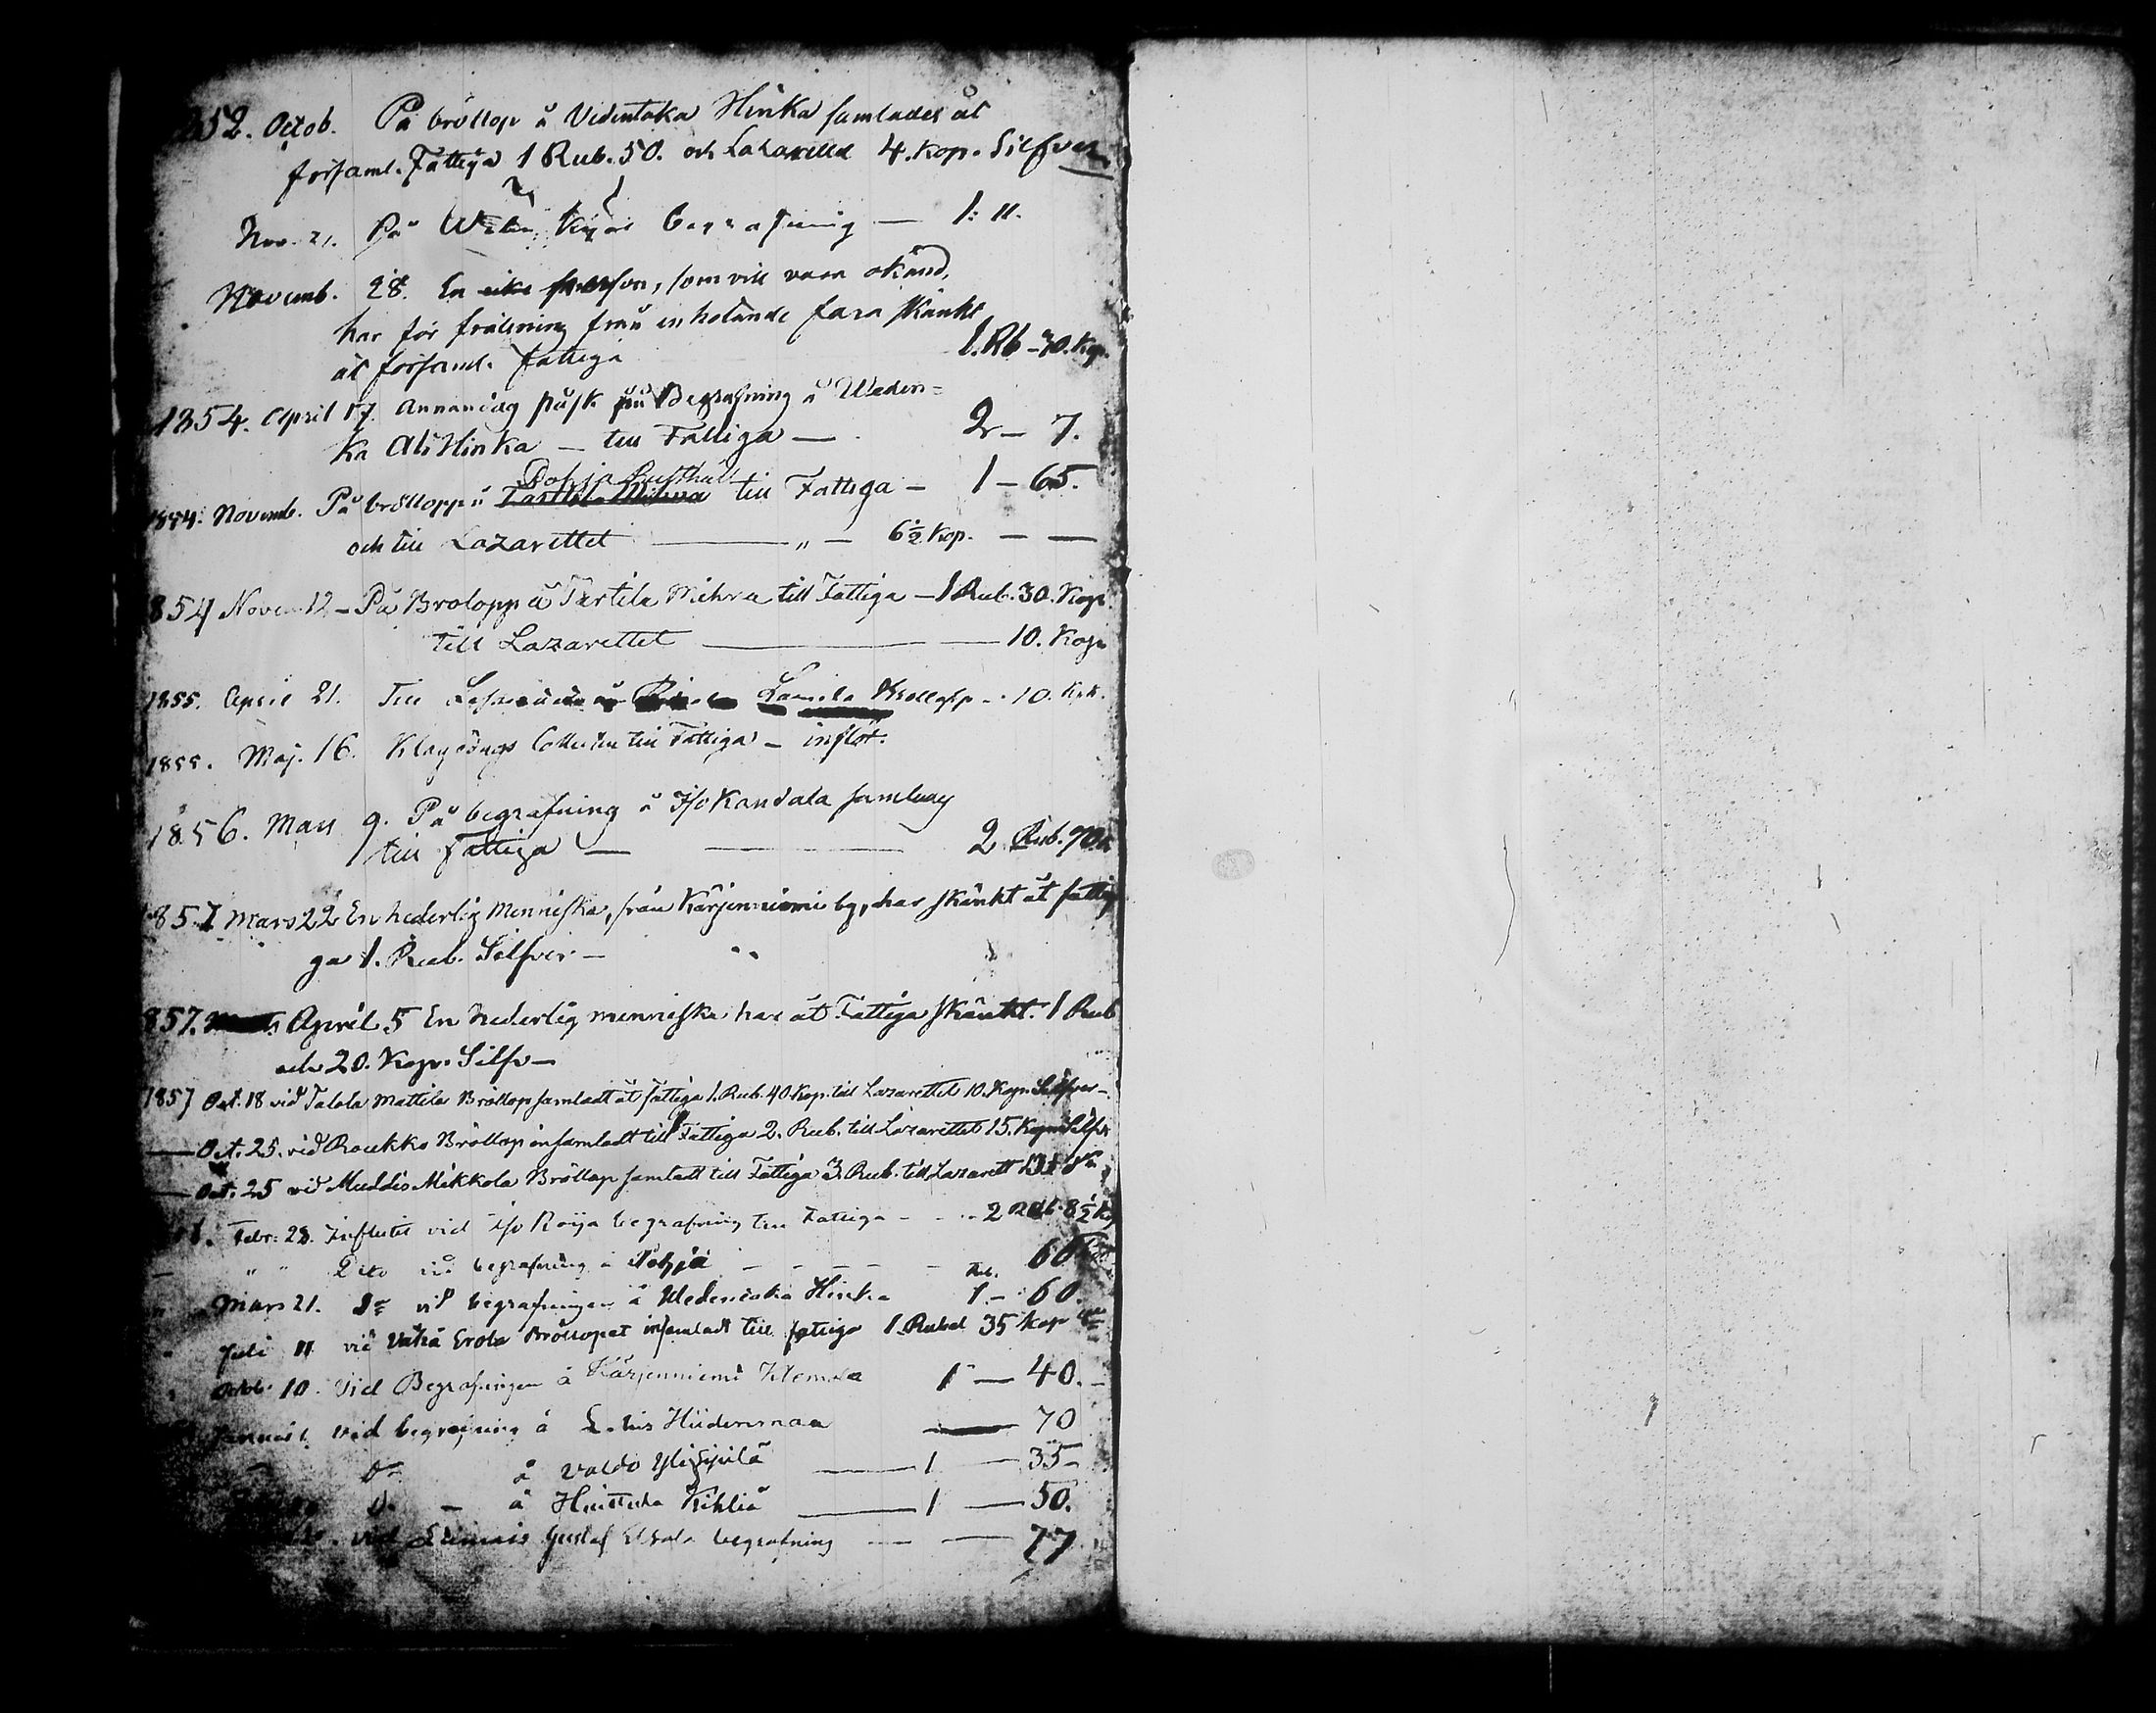 852. Octob. På bröllop å Videntaka Hinka samlades åt
församl. Fattiga 1 Rub. 50. och Lazarettet 4. Kop. Silfver
Nov. 21. På begrafning — 1: 11.
Novemb. 28. En person, som vill vara okänd,
har för frälsning från en hotande fara skänkt
åt församl. fattiga 1. Rb – 70. Kop.
1854. April 17. Annandag påsk på Begrafning å Weden=
ka Ali Hinka — till Fattiga — 2 — 7.
Pohja
1854. Novemb. På bröllopp å Tartila Mihra till Fattiga — 1 — 65.
och till Lazarettet — „ — 6½ Kop. — —
854 Novem 12 – På Brölopp å Tartila Mihra till Fattiga — 1 Rub. 30. Kop.
till Lazarettet — — 10. Kop.
1855. April 21. Till Bröllopp – 10. Kop.
1855. Maj. 16. Collecten till Fattiga – inflöt.
1856. Mars 9. På begrafning å Iso Kandala samlades
till Fattiga — — 2 Rub. 70.
857 Mars 22 En hederlig Menniska, från Kärjenniemi by, har skänkt åt fatti
ga 1. Rub. Silfver —
857. April 5 En hederlig menniska har åt Fattiga skänkt. 1 Rub
och 20. Kop. Silfv —
1857 Oct. 18 vid Talola Mattila Bröllop samladt åt fattiga 1. Rub. 40. Kop. till Lazarettet 10. Kop. Silfver –
— Oct. 25. vid Roukko Bröllop insamladt till Fattiga 2. Rub. till Lazarettet 15. Kop. Silfv
— Oct. 25 vid Muddis Mikkola Bröllop samladt till Fattiga 3. Rub. till Lazarett
Febr. 28. Influtit vid Iso Roija begrafning till Fattiga – – 2 Rub. 8½ K
„ „ Dito vid begrafning å Pohja – – – – – 60
Mars 21. Do vid begrafningen å Wedentaka Hinka Rub. 1 – 60.
Juli 11 vid Vähä Erola Bröllopet insamladt till fattiga 1. Rubel 35 Kop
Octob. 10. Vid Begrafningen å Kärjenniemi Klemola 1 — 40. –
vid begrafning å Hiidenmaa — 70
Do å Valdo Ylisipilä — 1 — 35 –
Do – å Huittula Kihliä — 1 — 50.
vid Gustaf begrafning — — 77